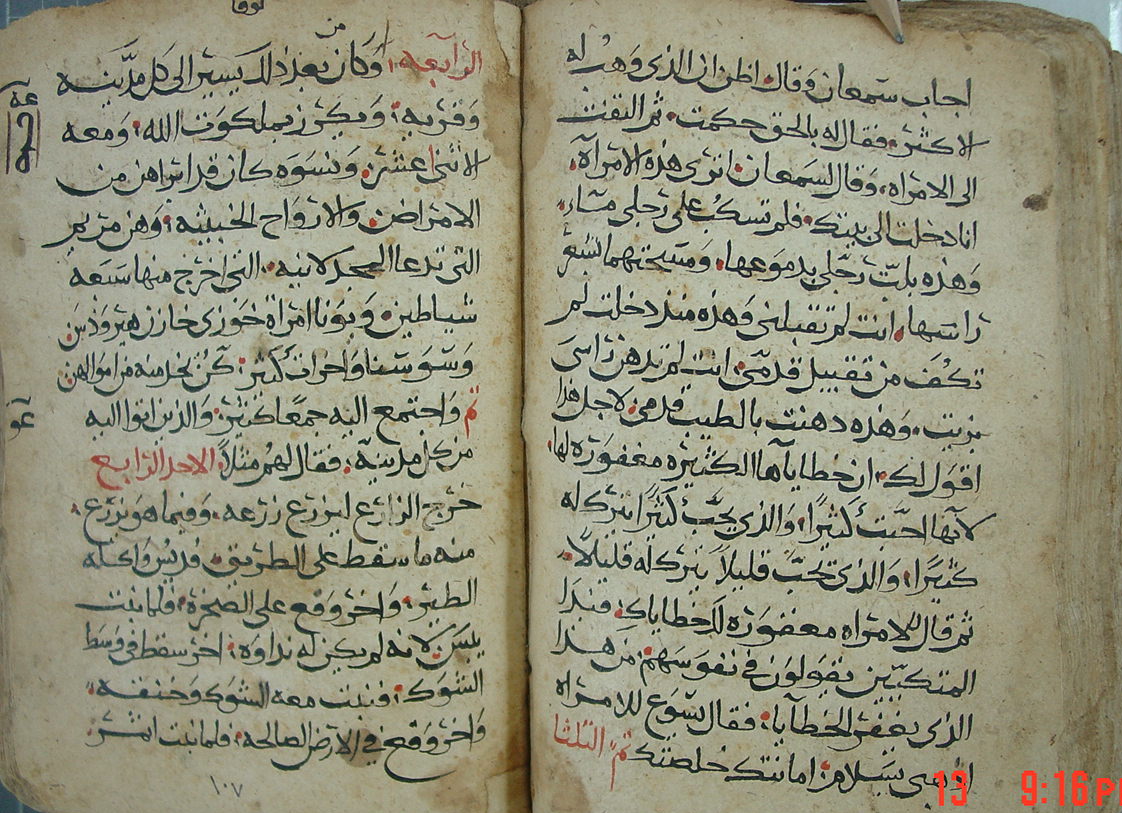 اجاب سمعان وقال اظن ان الذى وهب له
الاكثر فقال له بالحق حكمت ثم التفت
الى الامراه وقال لسمعان اترى هذه الامرآة
انا دخلت الى بيتك فلم تسكب على رجلى ماء
وهذه بلت رجلى بدموعها ومسحتهما بشعر
راسها انت لم تقبلنى وهذه منذ دخلت لم
تكف من تقبيل قدمى انت لم تدهن راسى
بزيت وهذه دهنت بالطيب قدمى لاجل هذا
اقول لك ان خطاياها الكثيره مغفوره لها
لانها احبت كثيرا والذى يحب كثيرا يترك له
كثيرا والذى يحب قليلا يترك له قليلا
ثم قال للامراه مغفوره لك خطاياك فبدا
المتكيين يقولون فى نفوسهم من هذا
الذى يغفر الخطايا فقال يسوع للامراه
اذهبى بسلام امانتك خلصتك تم الثلثا
لوقا
الرابعه وكان من بعد ذلك يسير الى كل مدينه
وقريه ويكرز بملكوت الله ومعه
الاثنى عشر ونسوه كان قد ابراهن من
الامراض والارواح الخبيثه وهن مريم
التى تدعا المجدلانيه التى اخرج منها سبعه
شياطين ويونا امراة خوزى خازن هيرودس
وسوسنا واخرات كثير كن يخدمنه من اموالهن
تم واجتمع اليه جمعا كثير والذين اتوا اليه
من كل مدينه فقال لهم مثلا الاحد الرابع
خرج الزارع ليزرع زرعه وفيما هو يزرع
منه ما سقط على الطريق فديس واكله
الطير واخر وقع على الصخره فلما نبت
يبس لانه لم يكن له نداوه اخر سقط فى وسط
الشوك فنبت معه الشوك وخنقه
واخر وقع فى الارض الصالحه فلما نبت اثمر
١٠٧
13 9:16